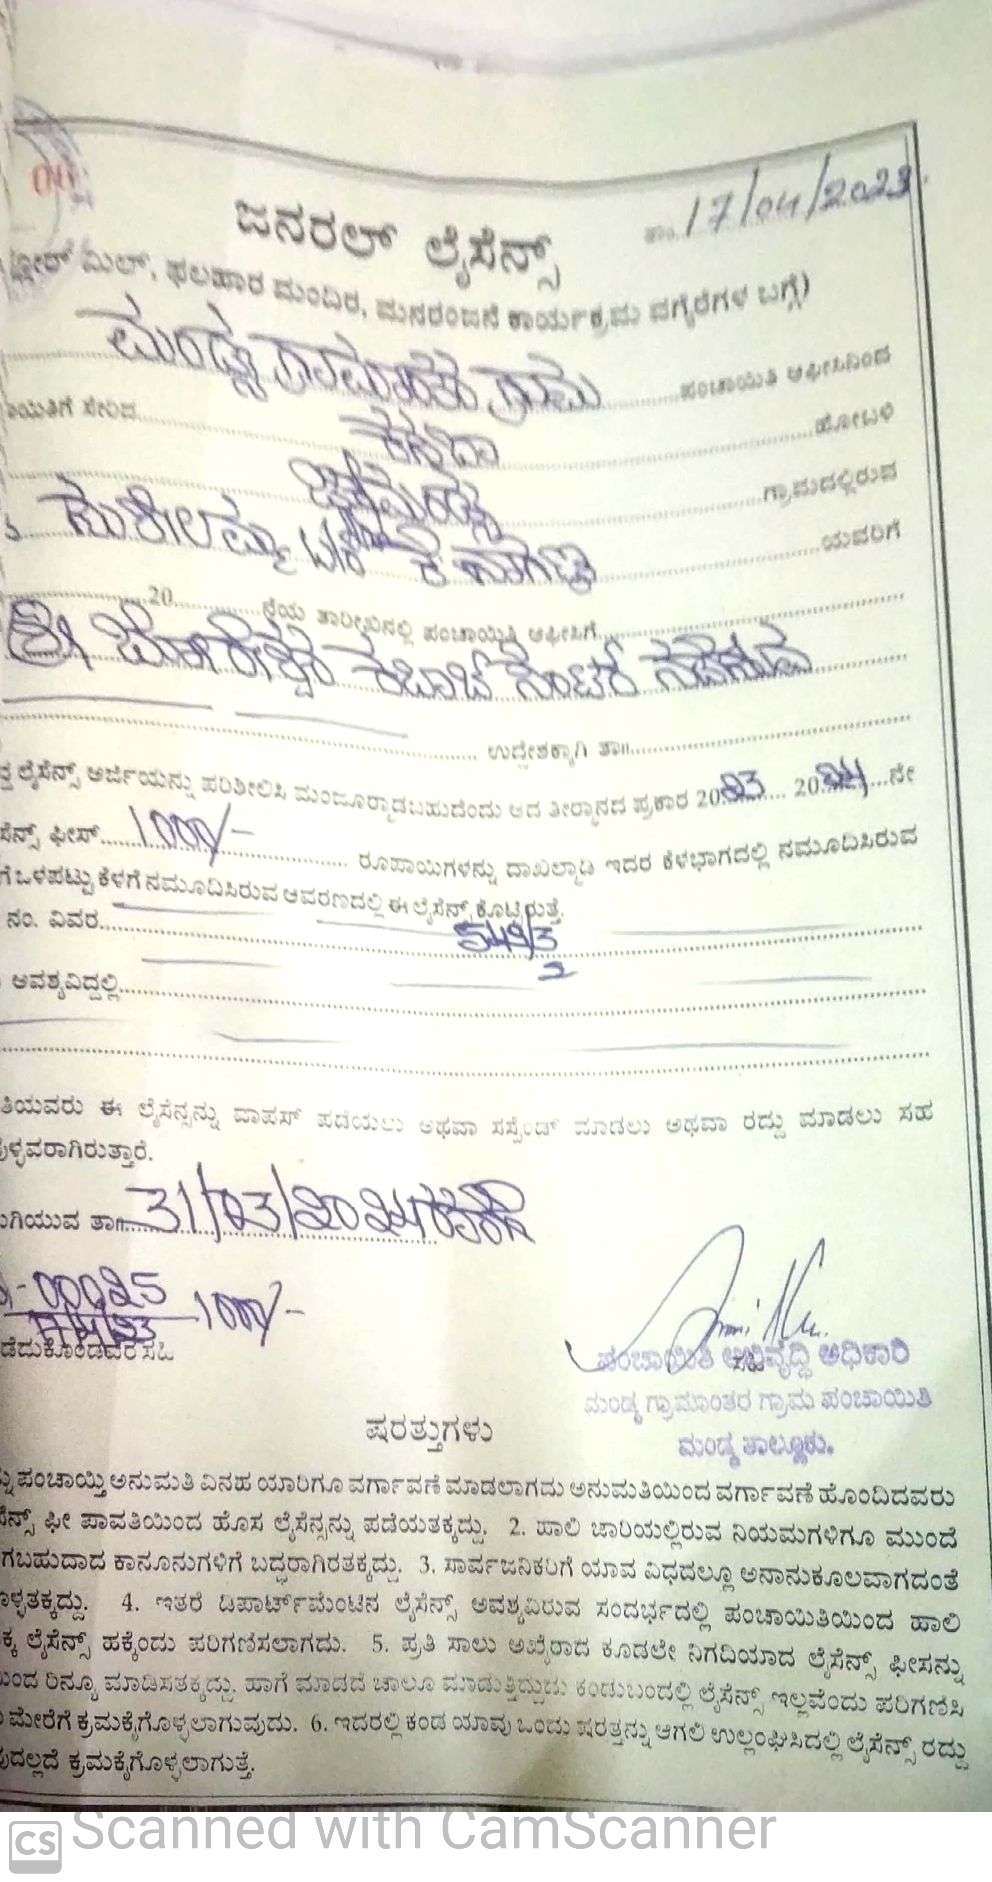 ತಾ. 17/04/2023
ಜನರಲ್ ಲೈಸೆನ್ಸ್
ಫ್ಲೋರ್ ಮಿಲ್, ಫಲಹಾರ ಮಂದಿರ, ಮನರಂಜನೆ ಕಾರ್ಯಕ್ರಮ ವಗೈರೆಗಳ ಬಗ್ಗೆ)
ಮಂಡ್ಯ ಗ್ರಾಮಾಂತರ ಗ್ರಾಮ ಪಂಚಾಯಿತಿ ಆಫೀಸಿನಿಂದ
ಾಯಿತಿಗೆ ಸೇರಿದ ಕಸಬಾ ಹೋಬಳಿ
ಚಿಕ್ಕಮಂಡ್ಯ ಗ್ರಾಮದಲ್ಲಿರುವ
ಸುಶೀಲಮ್ಮ ಯವರಿಗೆ
20 ನೆಯ ತಾರೀಖಿನಲ್ಲಿ ಪಂಚಾಯಿತಿ ಆಫೀಸಿಗೆ
ಶ್ರೀ ಸೆಂಟರ್ ನಡೆಸುವ
ಉದ್ದೇಶಕ್ಕಾಗಿ ತಾ||
ಲೈಸೆನ್ಸ್ ಅರ್ಜಿಯನ್ನು ಪರಿಶೀಲಿಸಿ ಮಂಜೂರ್ಮಾಡಬಹುದೆಂದು ಆದ ತೀರ್ಮಾನದ ಪ್ರಕಾರ 2023 2024 ನೇ
ಸೆನ್ಸ್ ಫೀಸ್ 1000/- ರೂಪಾಯಿಗಳನ್ನು ದಾಖಲ್ಮಾಡಿ ಇದರ ಕೆಳಭಾಗದಲ್ಲಿ ನಮೂದಿಸಿರುವ
ಗೆ ಒಳಪಟ್ಟು ಕೆಳಗೆ ನಮೂದಿಸಿರುವ ಆವರಣದಲ್ಲಿ ಈ ಲೈಸೆನ್ಸ್ ಕೊಟ್ಟಿರುತ್ತೆ.
ನಂ. ವಿವರ 549/3
2
ಅವಶ್ಯವಿದ್ದಲ್ಲಿ
ತಿಯವರು ಈ ಲೈಸೆನ್ಸನ್ನು ವಾಪಸ್ ಪಡೆಯಲು ಅಥವಾ ಸಸ್ಪೆಂಡ್ ಮಾಡಲು ಅಥವಾ ರದ್ದು ಮಾಡಲು ಸಹ
ುಳ್ಳವರಾಗಿರುತ್ತಾರೆ.
ುಗಿಯುವ ತಾ|| 31/03/2024 ರವರೆಗೆ
00025 1000/-
17/4/23
ಡೆದುಕೊಂಡವರ ಸಹಿ
ಪಂಚಾಯಿತಿ ಅಭಿವೃದ್ಧಿ ಅಧಿಕಾರಿ
ಮಂಡ್ಯ ಗ್ರಾಮಾಂತರ ಗ್ರಾಮ ಪಂಚಾಯಿತಿ
ಮಂಡ್ಯ ತಾಲ್ಲೂಕು.
ಷರತ್ತುಗಳು
ನ್ನು ಪಂಚಾಯ್ತಿ ಅನುಮತಿ ವಿನಹ ಯಾರಿಗೂ ವರ್ಗಾವಣೆ ಮಾಡಲಾಗದು ಅನುಮತಿಯಿಂದ ವರ್ಗಾವಣೆ ಹೊಂದಿದವರು
ಸೆನ್ಸ್ ಫೀ ಪಾವತಿಯಿಂದ ಹೊಸ ಲೈಸೆನ್ಸನ್ನು ಪಡೆಯತಕ್ಕದ್ದು. 2. ಹಾಲಿ ಜಾರಿಯಲ್ಲಿರುವ ನಿಯಮಗಳಿಗೂ ಮುಂದೆ
ಗಬಹುದಾದ ಕಾನೂನುಗಳಿಗೆ ಬದ್ಧರಾಗಿರತಕ್ಕದ್ದು. 3. ಸಾರ್ವಜನಿಕರಿಗೆ ಯಾವ ವಿಧದಲ್ಲೂ ಅನಾನುಕೂಲವಾಗದಂತೆ
ೊಳ್ಳತಕ್ಕದ್ದು. 4. ಇತರೆ ಡಿಪಾರ್ಟ್‌ಮೆಂಟಿನ ಲೈಸೆನ್ಸ್ ಅವಶ್ಯವಿರುವ ಸಂದರ್ಭದಲ್ಲಿ ಪಂಚಾಯಿತಿಯಿಂದ ಹಾಲಿ
ಕ್ಕ ಲೈಸೆನ್ಸ್ ಹಕ್ಕೆಂದು ಪರಿಗಣಿಸಲಾಗದು. 5. ಪ್ರತಿ ಸಾಲು ಅಖೈರಾದ ಕೂಡಲೇ ನಿಗದಿಯಾದ ಲೈಸೆನ್ಸ್ ಫೀಸನ್ನು
ಿಂದ ರಿನ್ಯೂ ಮಾಡಿಸತಕ್ಕದ್ದು. ಹಾಗೆ ಮಾಡದೆ ಚಾಲೂ ಮಾಡುತ್ತಿದ್ದುದು ಕಂಡುಬಂದಲ್ಲಿ ಲೈಸೆನ್ಸ್ ಇಲ್ಲವೆಂದು ಪರಿಗಣಿಸಿ
ಮೇರೆಗೆ ಕ್ರಮಕೈಗೊಳ್ಳಲಾಗುವುದು. 6. ಇದರಲ್ಲಿ ಕಂಡ ಯಾವು ಒಂದು ಷರತ್ತನ್ನು ಆಗಲಿ ಉಲ್ಲಂಘಿಸಿದಲ್ಲಿ ಲೈಸೆನ್ಸ್ ರದ್ದು
ುದಲ್ಲದೆ ಕ್ರಮಕೈಗೊಳ್ಳಲಾಗುತ್ತೆ.
CS Scanned with CamScanner